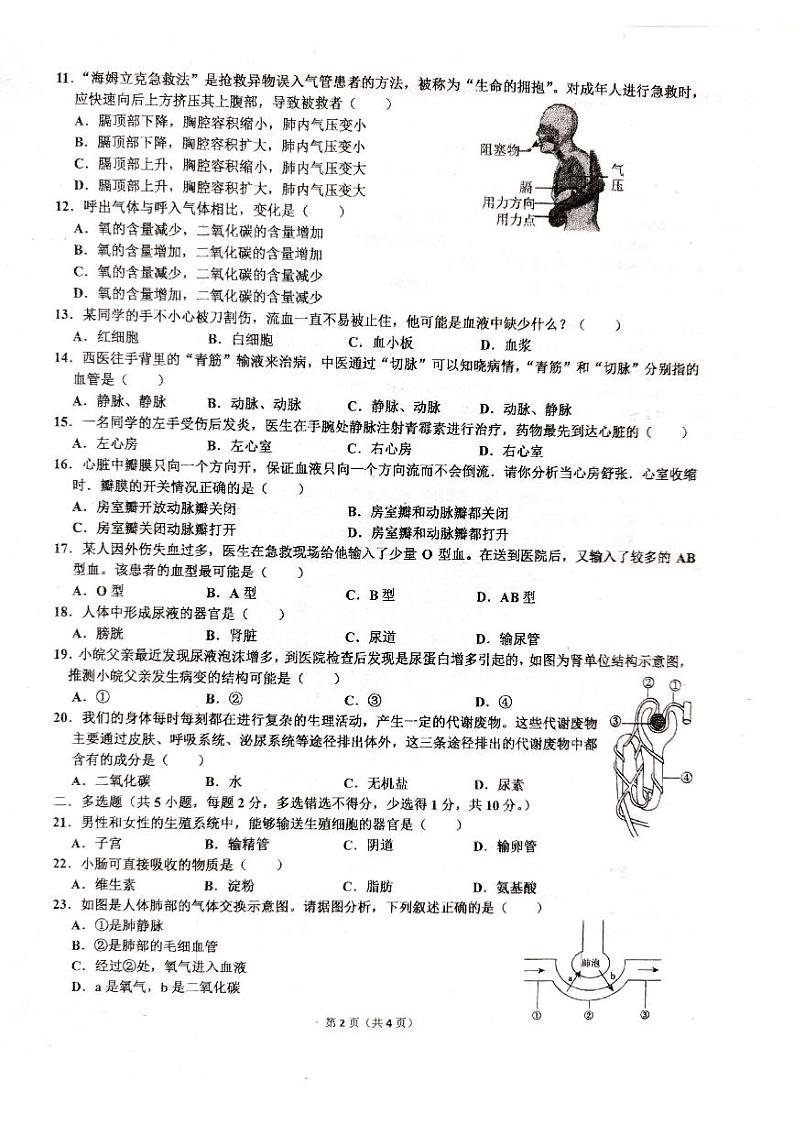 11．“海姆立克急救法”是抢救异物误入气管患者的方法，被称为“生命的拥抱”。对成年人进行急救时，
应快速向后上方挤压其上腹部，导致被救者（　　）
A．膈顶部下降，胸腔容积缩小，肺内气压变小
B．膈顶部下降，胸腔容积扩大，肺内气压变小
C．膈顶部上升，胸腔容积缩小，肺内气压变大
D．膈顶部上升，胸腔容积扩大，肺内气压变大
阻塞物
膈
用力方向
用力点
气压
12．呼出气体与呼入气体相比，变化是（　　）
A．氧的含量减少，二氧化碳的含量增加
B．氧的含量增加，二氧化碳的含量增加
C．氧的含量减少，二氧化碳的含量减少
D．氧的含量增加，二氧化碳的含量减少
13．某同学的手不小心被刀割伤，流血一直不易被止住，他可能是血液中缺少什么？（　　）
A．红细胞　　B．白细胞　　C．血小板　　D．血浆
14．西医往手背里的“青筋”输液来治病，中医通过“切脉”可以知晓病情，“青筋”和“切脉”分别指的
血管是（　　）
A．静脉、静脉　　B．动脉、动脉　　C．静脉、动脉　　D．动脉、静脉
15．一名同学的左手受伤后发炎，医生在手腕处静脉注射青霉素进行治疗，药物最先到达心脏的（　　）
A．左心房　　B．左心室　　C．右心房　　D．右心室
16．心脏中瓣膜只向一个方向开，保证血液只向一个方向流而不会倒流．请你分析当心房舒张．心室收缩
时．瓣膜的开关情况正确的是（　　）
A．房室瓣开放动脉瓣关闭　　B．房室瓣和动脉瓣都关闭
C．房室瓣关闭动脉瓣打开　　D．房室瓣和动脉瓣都打升
17．某人因外伤失血过多，医生在急救现场给他输入了少量 O 型血。在送到医院后，又输入了较多的 AB
型血。该患者的血型最可能是（　　）
A．O 型　　B．A 型　　C．B 型　　D．AB 型
18．人体中形成尿液的器官是（　　）
A．膀胱　　B．肾脏　　C．尿道　　D．输尿管
19．小皖父亲最近发现尿液泡沫增多，到医院检查后发现是尿蛋白增多引起的，如图为肾单位结构示意图，
推测小皖父亲发生病变的结构可能是（　　）
A．①　　B．②　　C．③　　D．④
②
①
③
④
20．我们的身体每时每刻都在进行复杂的生理活动，产生一定的代谢废物。这些代谢废物
主要通过皮肤、呼吸系统、泌尿系统等途径排出体外，这三条途径排出的代谢废物中都
含有的成分是（　　）
A．二氧化碳　　B．水　　C．无机盐　　D．尿素
二．多选题（共 5 小题，每题 2 分，多选错选不得分，少选得 1 分，共 10 分。）
21．男性和女性的生殖系统中，能够输送生殖细胞的器官是（　　）
A．子宫　　B．输精管　　C．阴道　　D．输卵管
22．小肠可直接吸收的物质是（　　）
A．维生素　　B．淀粉　　C．脂肪　　D．氨基酸
23．如图是人体肺部的气体交换示意图。请据图分析，下列叙述正确的是（　　）
A．①是肺静脉
B．②是肺部的毛细血管
C．经过②处，氧气进入血液
D．a 是氧气，b 是二氧化碳
肺泡
a
b
①
②
③
第 2 页（共 4 页）